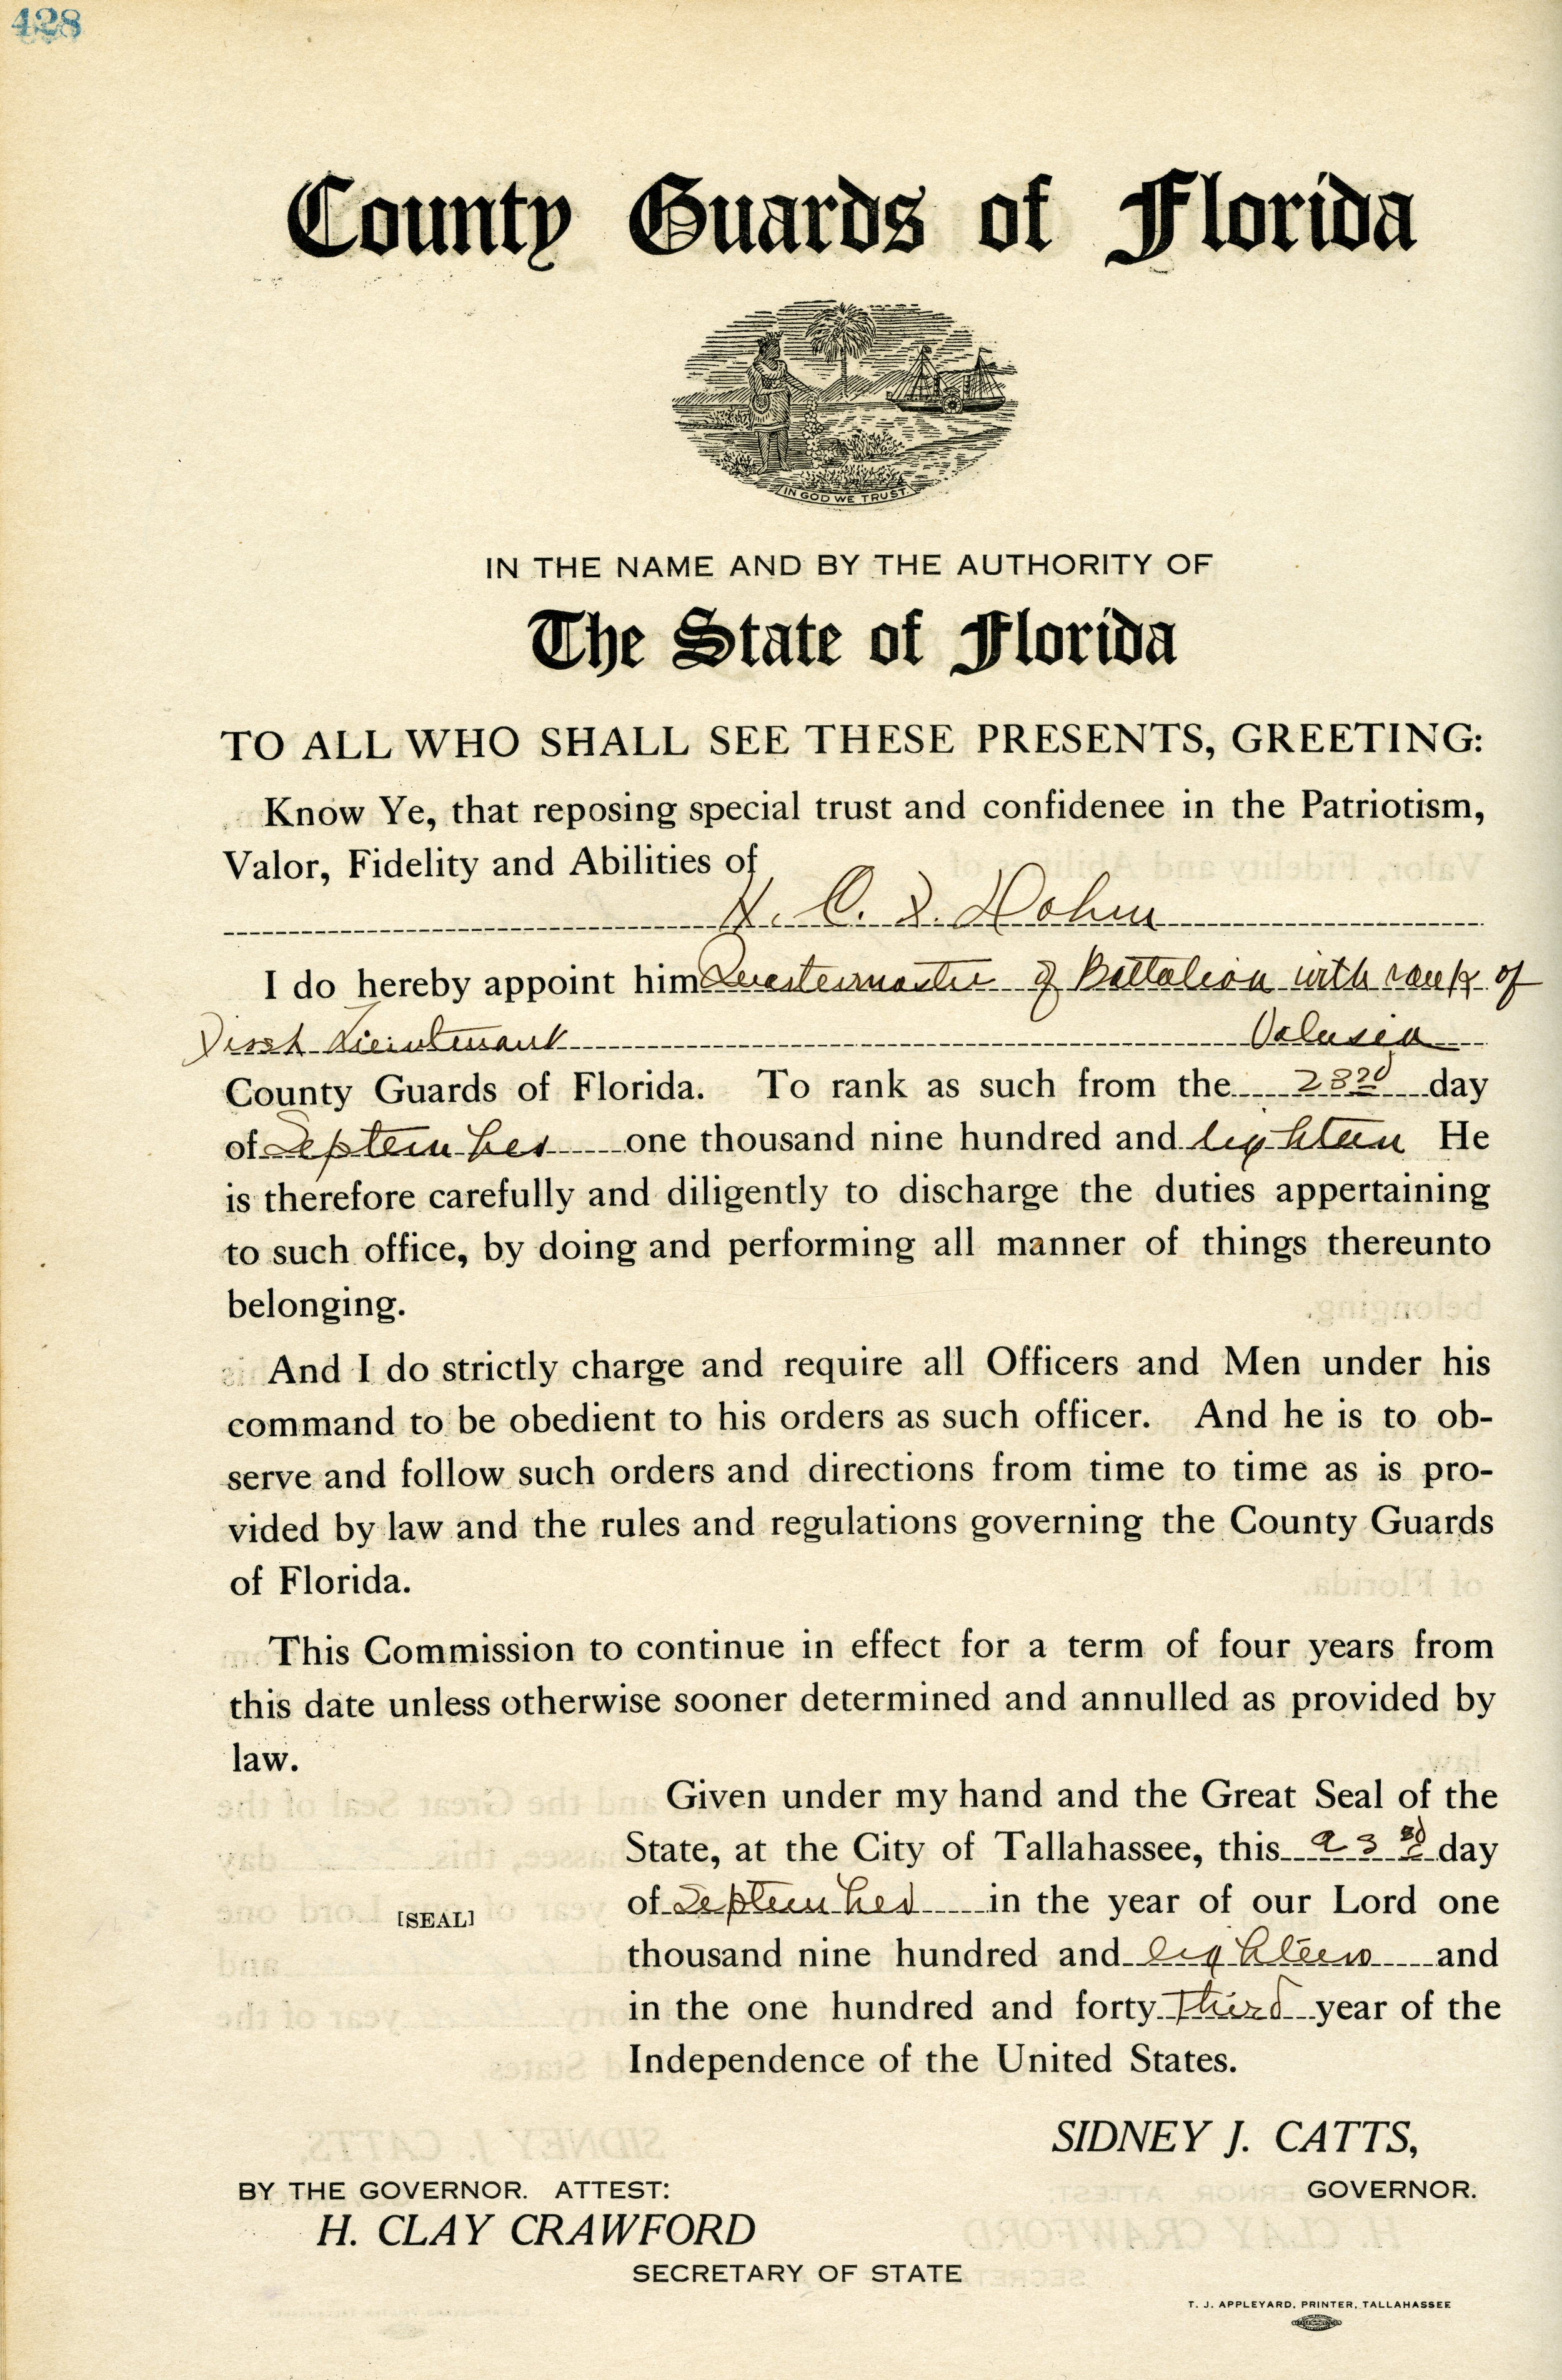 428
County Guards of Florida
IN GOD WE TRUST.
IN THE NAME AND BY THE AUTHORITY OF
The State of Florida
TO ALL WHO SHALL SEE THESE PRESENTS, GREETING:
Know Ye, that reposing special trust and confidenee in the Patriotism,
Valor, Fidelity and Abilities of
H. C. F. Dohm
I do hereby appoint him Quartermaster of Battalion with rank of
First Lieutenant Volusia
County Guards of Florida. To rank as such from the 23rd day
of September one thousand nine hundred and eighteen He
is therefore carefully and diligently to discharge the duties appertaining
to such office, by doing and performing all manner of things thereunto
belonging.
And I do strictly charge and require all Officers and Men under his
command to be obedient to his orders as such officer. And he is to ob-
serve and follow such orders and directions from time to time as is pro-
vided by law and the rules and regulations governing the County Guards
of Florida.
This Commission to continue in effect for a term of four years from
this date unless otherwise sooner determined and annulled as provided by
law.
Given under my hand and the Great Seal of the
State, at the City of Tallahassee, this 23rd day
of September in the year of our Lord one
[SEAL]
thousand nine hundred and eighteen and
in the one hundred and forty Third year of the
Independence of the United States.
SIDNEY J. CATTS,
GOVERNOR.
BY THE GOVERNOR. ATTEST:
H. CLAY CRAWFORD
SECRETARY OF STATE
T. J. APPLEYARD, PRINTER, TALLAHASSEE